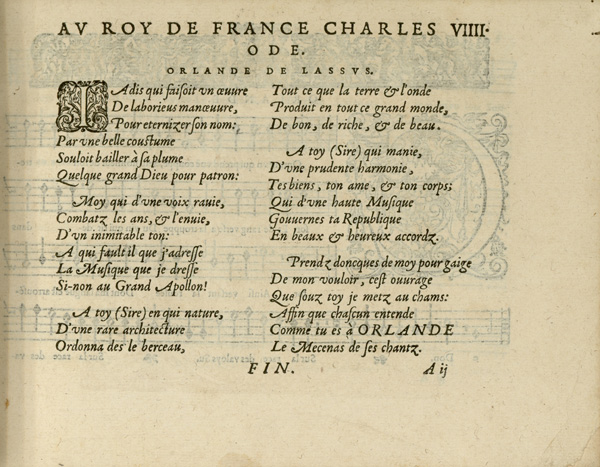 AV ROY DE FRANCE CHARLES VIIII.
ODE.
ORLANDE DE LASSVS.
IAdis qui faisoit vn œuure
De laborieus manœuure,
Pour eternizer son nom;
Par vne belle coustume
Souloit bailler à sa plume
Quelque grand Dieu pour patron:
Moy qui d'vne voix rauie,
Combatz les ans, & l'enuie,
D'vn inimitable ton:
A qui fault il que j'adresse
La Musique que je dresse
Si-non au Grand Apollon!
A toy (Sire) en qui nature,
D'vne rare architecture
Ordonna des le berceau,
Tout ce que la terre & l'onde
Produit en tout ce grand monde,
De bon, de riche, & de beau.
A toy (Sire) qui manie,
D'vne prudente harmonie,
Tes biens, ton ame, & ton corps;
Qui d'vne haute Musique
Gouuernes ta Republique
En beaux & heureux accordz.
Prendz doncques de moy pour gaige
De mon vouloir, cest ouurage
Que souz toy je metz au chams:
Affin que chascun entende
Comme tu es à ORLANDE
Le Mecenas de ses chantz.
FIN.
A ij